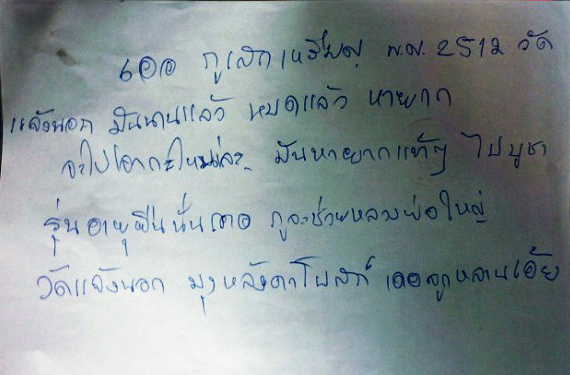 เออ กูเสกเหรียญ พ.ศ. 2512 วัด
แจ้งนอก มันนานแล้ว หมดแล้ว หายาก
จะไปเอากะไหนล่ะ มันหายากแท้ๆ ไปบูชา
รุ่นอายุยืนนั่นเถอ กูจะช่วยหลวงพ่อใหญ่
วัดแจ้งนอก มุงหลังคาโบสถ์ เดอลูกหลานเอ้ย